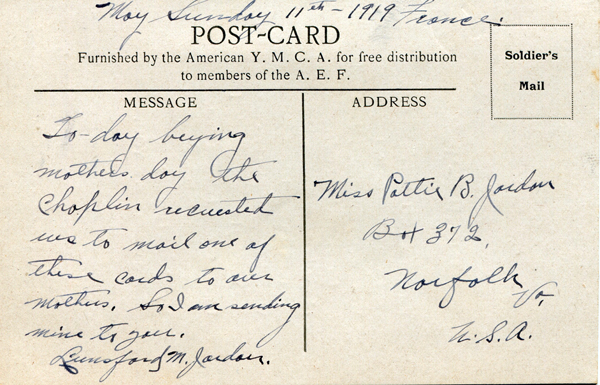 May Sunday 11th - 1919 France.
POST-CARD
Furnished by the American Y. M. C. A. for free distribution
to members of the A. E. F.
Soldier's
Mail
MESSAGE
To-day beying
mothers day the
Choplin recuested
us to mail one of
these cards to our
mothers. So I am sending
mine to you.
Lunsford M. Jordan.
ADDRESS
Miss Pattie B. Jordan
Box 372,
Norfolk Va,
U. S. A.